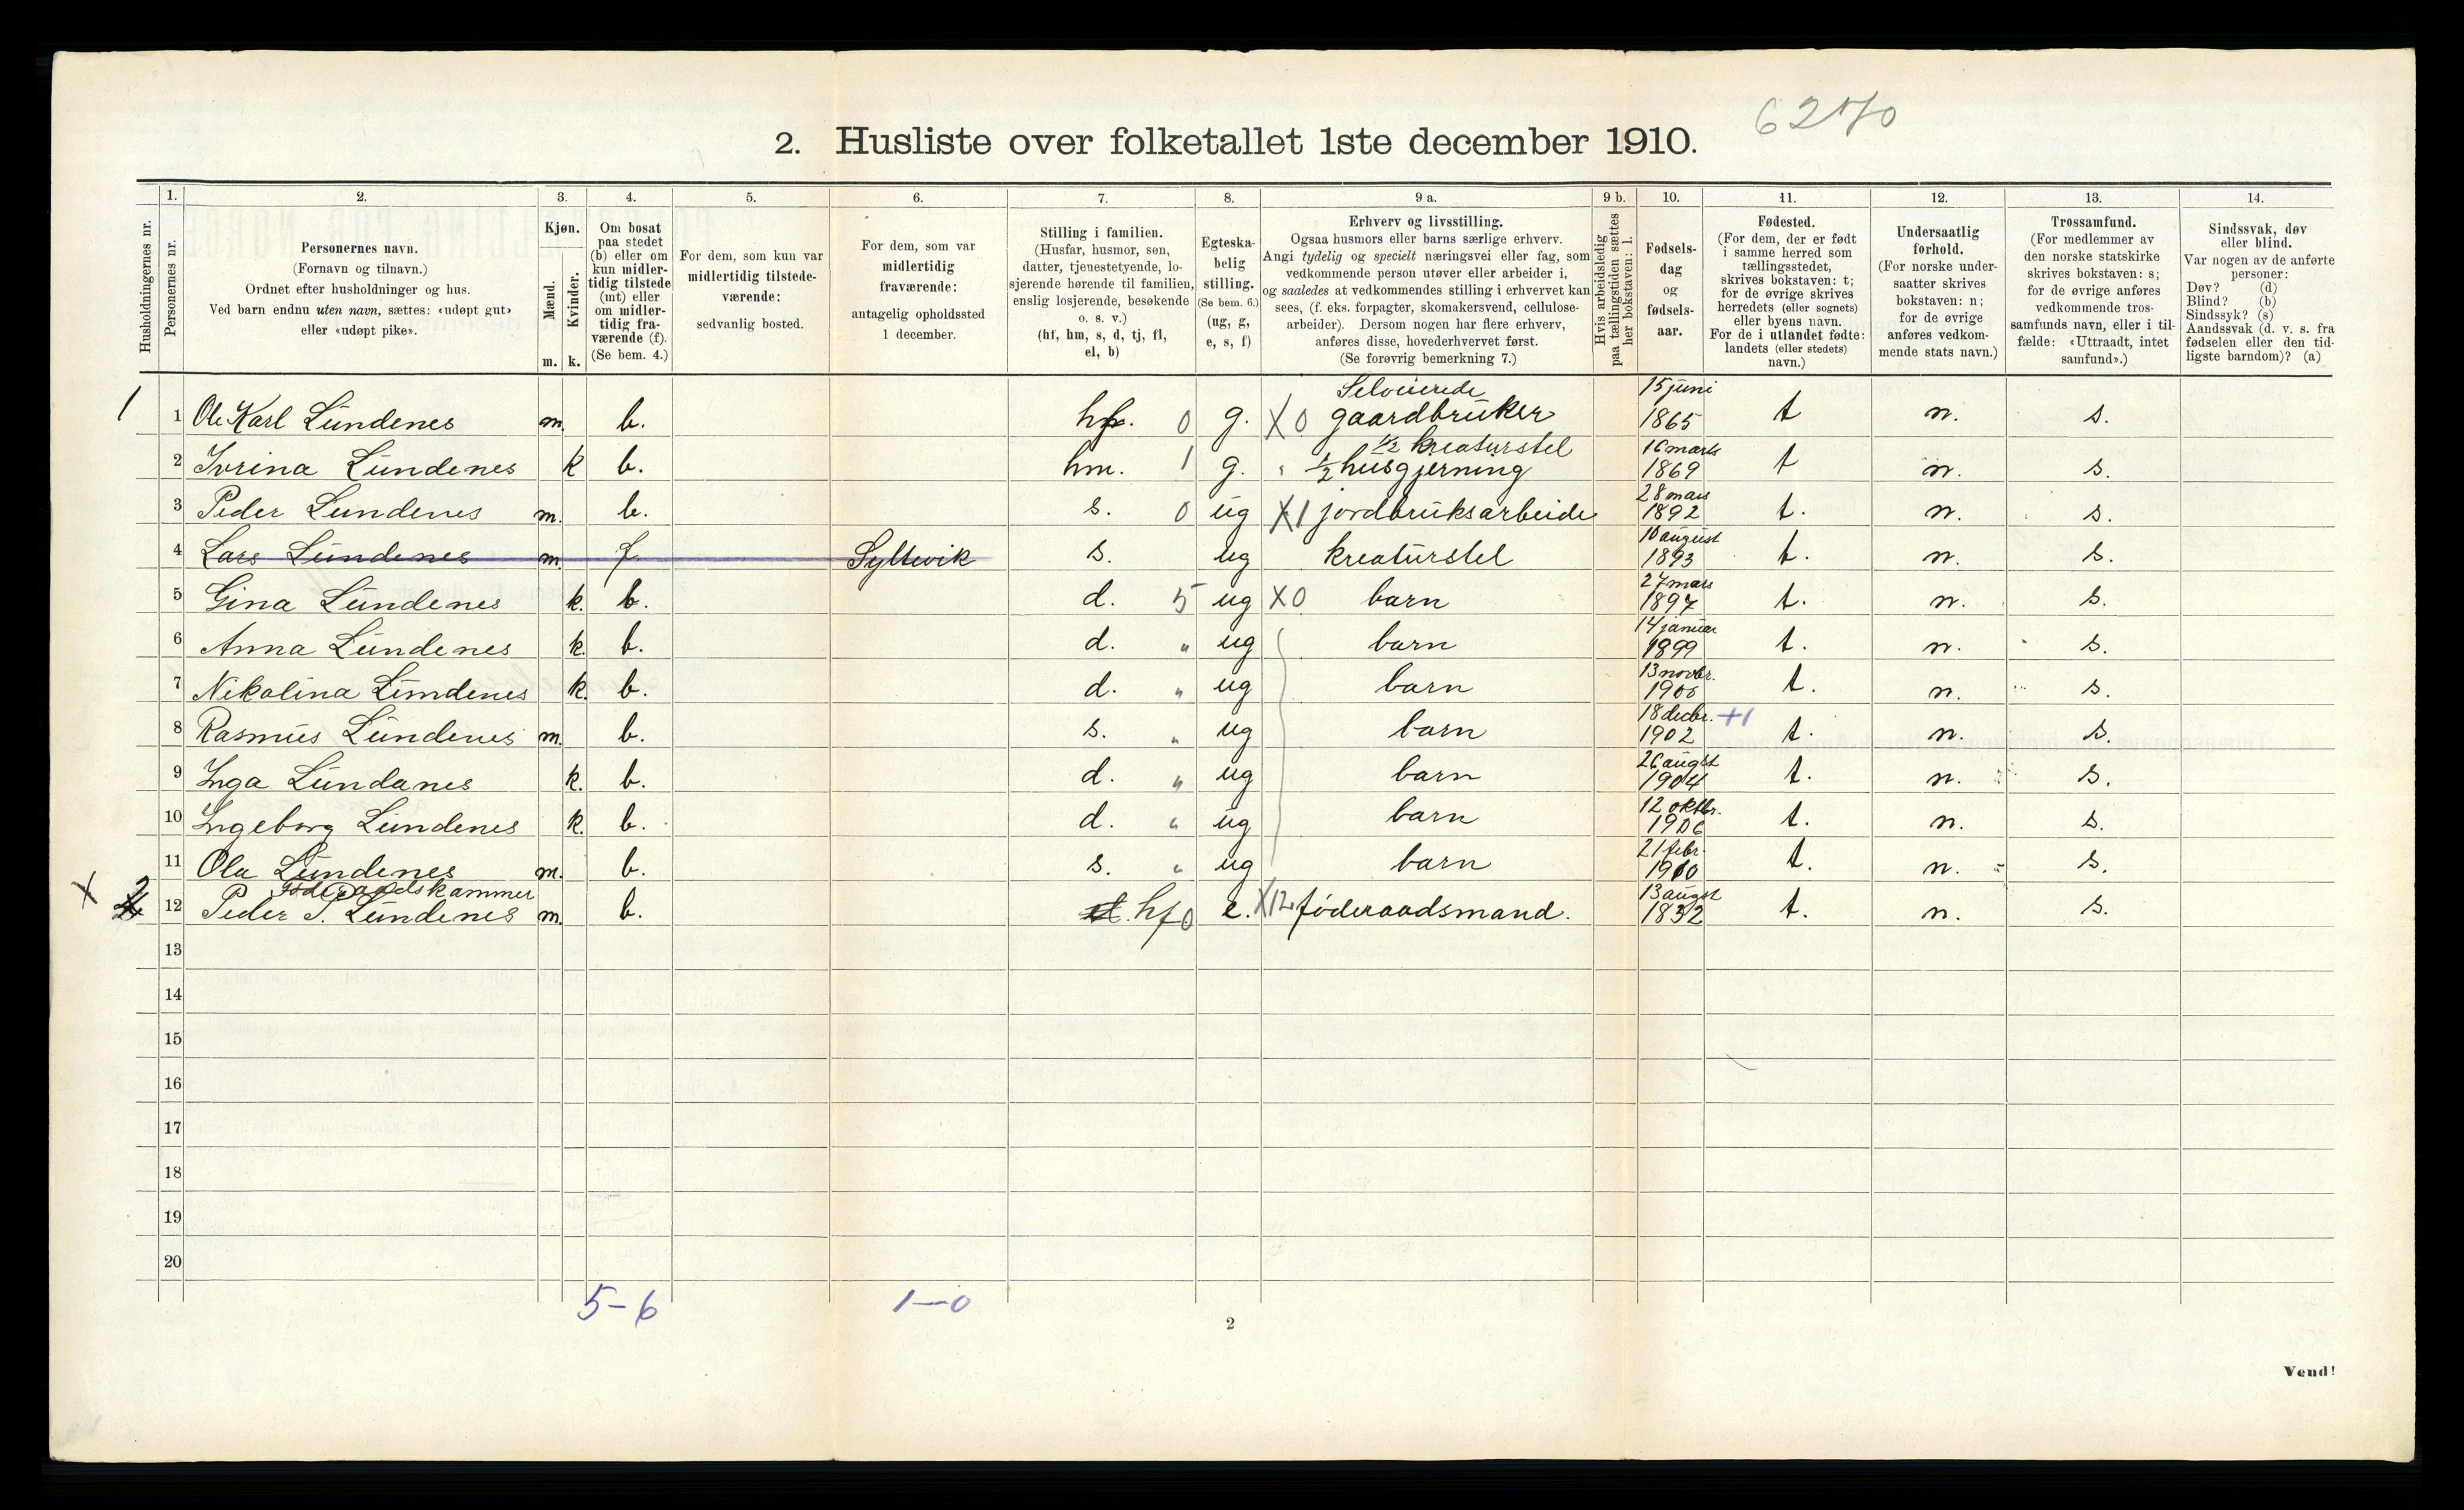 6270
2. Husliste over folketallet 1ste december 1910.
Husholdningernes nr.
1.
Personernes nr.
2.
Personernes navn.
(Fornavn og tilnavn.)
Ordnet efter husholdninger og hus.
Ved barn endnu uten navn, sættes: «udøpt gut»
eller «udøpt pike».
3.
Kjøn.
Mænd.
Kvinder.
m. k.
4.
Om bosat
paa stedet
(b) eller om
kun midler-
tidig tilstede
(mt) eller
om midler-
tidig fra-
værende (f).
(Se bem. 4.)
5.
For dem, som kun var
midlertidig tilstede-
værende:
sedvanlig bosted.
6.
For dem, som var
midlertidig
fraværende:
antagelig opholdssted
1 december.
7.
Stilling i familien.
(Husfar, husmor, søn,
datter, tjenestetyende, lo-
sjerende hørende til familien,
enslig losjerende, besøkende
o. s. v.)
(hf, hm, s, d, tj, fl,
el, b)
8.
Egteska-
belig
stilling.
(Se bem. 6.)
(ug, g,
e, s, f)
9 a.
Erhverv og livsstilling.
Ogsaa husmors eller barns særlige erhverv.
Angi tydelig og specielt næringsvei eller fag, som
vedkommende person utøver eller arbeider i,
og saaledes at vedkommendes stilling i erhvervet kan
sees, (f. eks. forpagter, skomakersvend, cellulose-
arbeider). Dersom nogen har flere erhverv,
anføres disse, hovederhvervet først.
(Se forøvrig bemerkning 7.)
9 b.
Hvis arbeidsledig
paa tællingstiden sættes
her bokstaven: l.
10.
Fødsels-
dag
og
fødsels-
aar.
11.
Fødested.
(For dem, der er født
i samme herred som
tællingsstedet,
skrives bokstaven: t;
for de øvrige skrives
herredets (eller sognets)
eller byens navn.
For de i utlandet fødte:
landets (eller stedets)
navn.)
12.
Undersaatlig
forhold.
(For norske under-
saatter skrives
bokstaven: n;
for de øvrige
anføres vedkom-
mende stats navn.)
13.
Trossamfund.
(For medlemmer av
den norske statskirke
skrives bokstaven: s;
for de øvrige anføres
vedkommende tros-
samfunds navn, eller i til-
fælde: «Uttraadt, intet
samfund».)
14.
Sindssvak, døv
eller blind.
Var nogen av de anførte
personer:
Døv? (d)
Blind? (b)
Sindssyk? (s)
Aandssvak (d. v. s. fra
fødselen eller den tid-
ligste barndom)? (a)
Selveierede 15 juni
1 1 Ole Karl Lundenes m. b. hf. 0 g. X 0 gaardbruker 1865 t n. s.
1/2 kreaturstel 16 marts
2 Ivrina Lundenes k b. hm. 1 g. " 1/2 husgjerning 1869 t n. s.
28 mars
3 Peder Lundenes m. b. s. 0 ug X 1 jordbruksarbeide 1892 t. n. s.
10 august
4 Lars Lundenes m. f Syltevik s. ug kreaturstel 1893 t. n. s.
27 mars
5 Gina Lundenes k. b. d. 5 ug X 0 barn 1897 t. n. s.
14 januar
6 Anna Lundenes k. b. d. " ug barn 1899 t. n. s.
13 novbr.
7 Nikolina Lundenes k. b. d. " ug barn 1900 t. n. s.
18 decbr. +1
8 Rasmus Lundenes m. b. s. " ug barn 1902 t. n. s.
26 augst
9 Inga Lundanes k. b. d. " ug barn 1904 t. n. s.
12 oktbr.
10 Ingeborg Lundenes k. b. d. " ug barn 1906 t. n. s.
21 febr.
11 Ola Lundenes m. b. s. " ug barn 1910 t. n. s.
Føderaadskammer 13 augst
X 2 12 Peder S. Lundenes m. b. hf 0 e. X 12 føderaadsmand. 1832 t. n. s.
13
14
15
16
17
18
19
20
5-6 1-0
2
Vend!